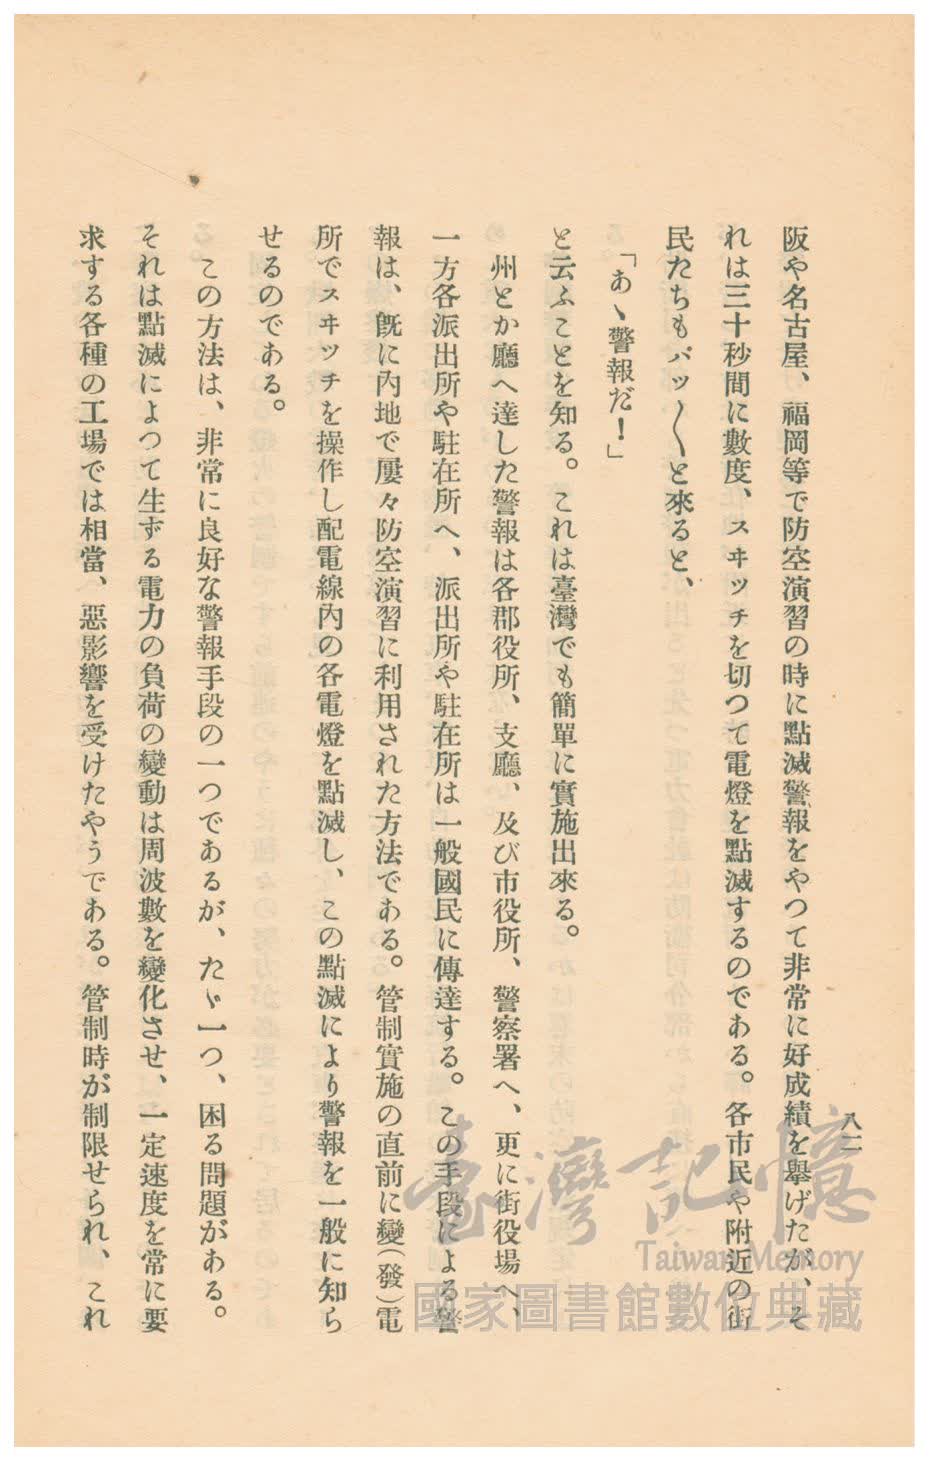 八二
阪や名古屋、福岡等で防空演習の時に點滅警報をやつて非常に好成績を擧げたが、そ
れは三十秒間に數度、スヰッチを切つて電燈を點滅するのである。各市民や附近の街
民たちもパッ〳〵と來ると、
「あゝ警報だ！」
と云ふことを知る。これは臺灣でも簡單に實施出來る。
州とか廳へ達した警報は各郡役所、支廳、及び市役所、警察署へ、更に街役場へ、
一方各派出所や駐在所へ、派出所や駐在所は一般國民に傳達する。この手段による警
報は、旣に內地で屢々防空演習に利用された方法である。管制實施の直前に變（發）電
所でスヰッチを操作し配電線內の各電燈を點滅し、この點滅により警報を一般に知ら
せるのである。
この方法は、非常に良好な警報手段の一つであるが、たゞ一つ、困る問題がある。
それは點滅によつて生ずる電力の負荷の變動は周波數を變化させ、一定速度を常に要
求する各種の工場では相當、惡影響を受けたやうである。管制時が制限せられ、これ
臺灣記憶
Taiwan Memory
國家圖書館數位典藏